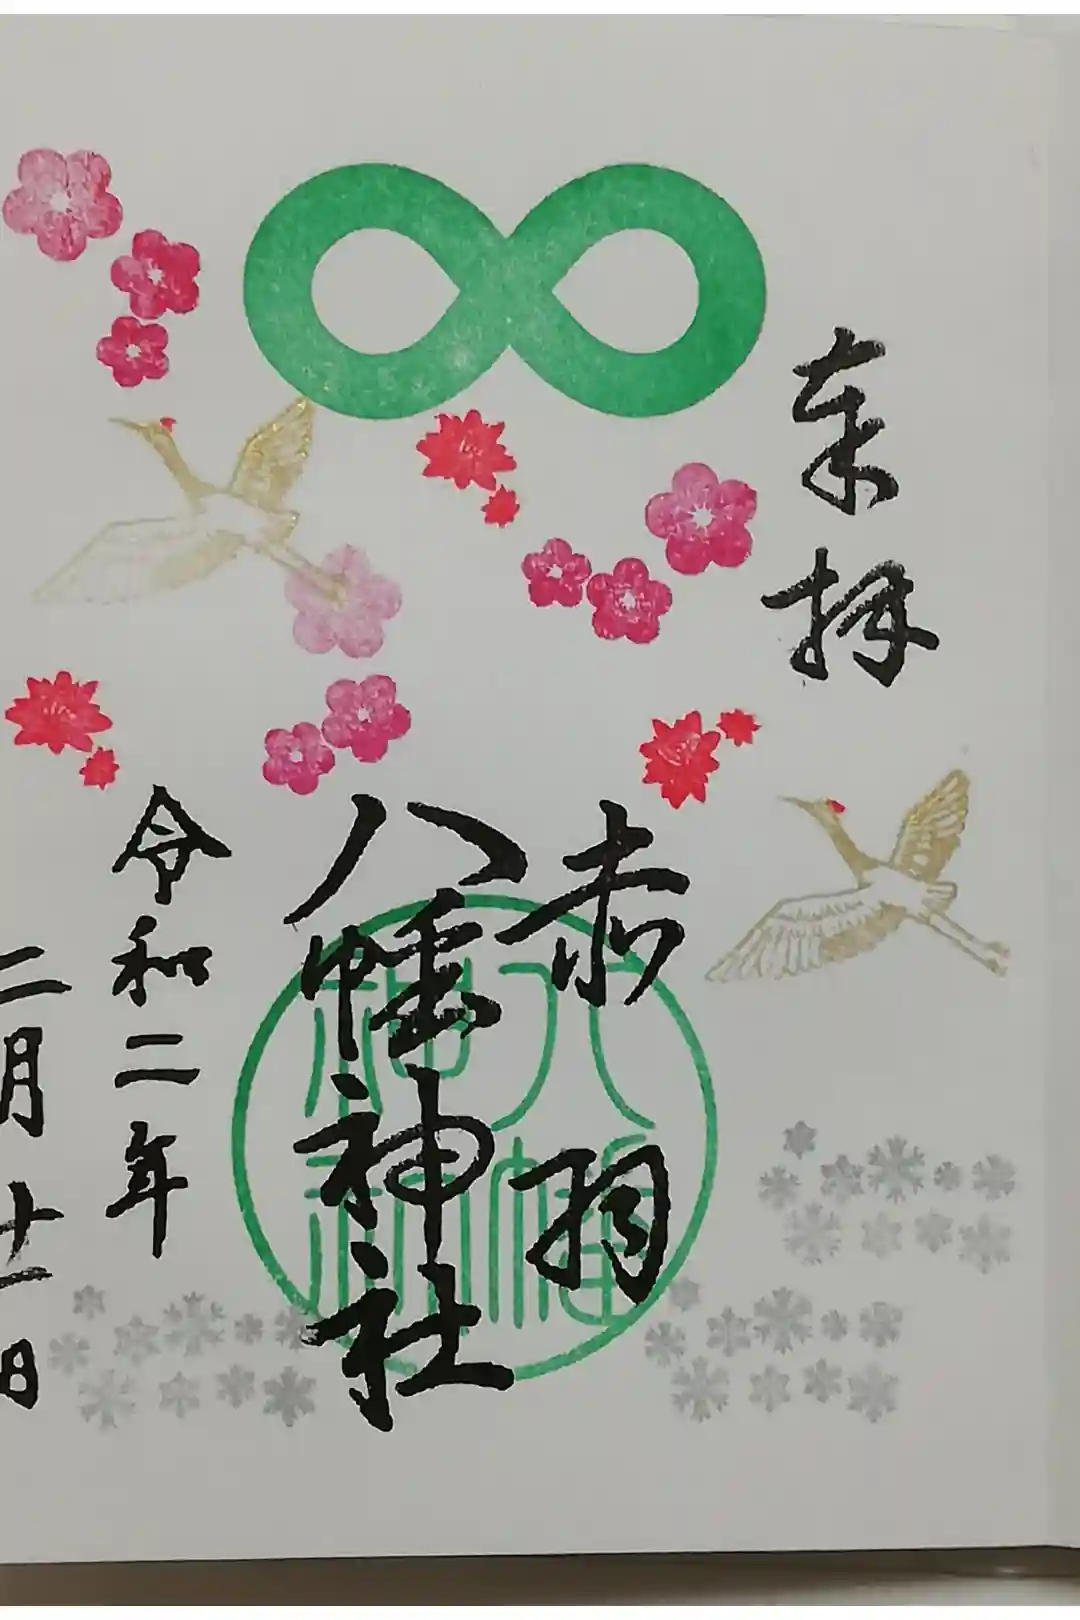 奉拝
赤羽
八幡神社
八幡
神社
令和二年
二月十一日